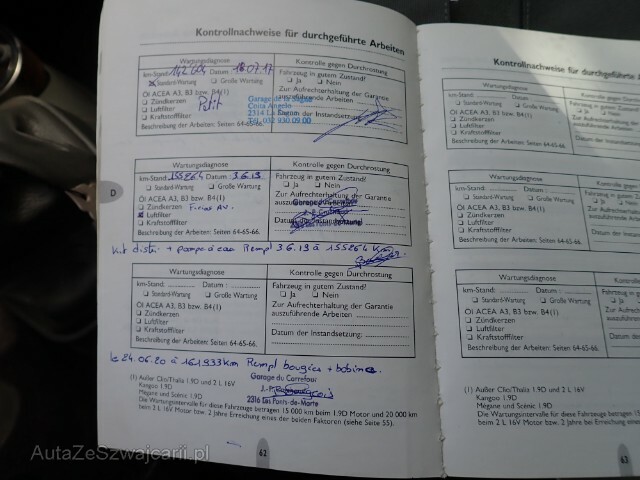 Kontrollnachweise für durchgeführte Arbeiten
Wartungsdiagnose
km-Stand: 142604 Datum: 18.07.17
Standard-Wartung Große Wartung
Öl ACEA A3, B3 bzw. B4(1)
Zündkerzen
Luftfilter
Kraftstofffilter
Beschreibung der Arbeiten: Seiten 64-65-66.
Kontrolle gegen Durchrostung
Fahrzeug in gutem Zustand?
Ja Nein
Zur Aufrechterhaltung der Garantie
auszuführende Arbeiten
Garage de la
2314 La
Tél. 032 930 09 00
Datum der Instandsetzung:
Wartungsdiagnose
km-Stand: 155264 Datum: 3.6.19
Standard-Wartung Große Wartung
Öl ACEA A3, B3 bzw. B4(1)
Zündkerzen
Luftfilter
Kraftstofffilter
Beschreibung der Arbeiten: Seiten 64-65-66.
Kontrolle gegen Durchrostung
Fahrzeug in gutem Zustand?
Ja Nein
Zur Aufrechterhaltung der Garantie
auszuführende
Datum der Instandsetzung:
D
Kit distri + pompe à eau Rempl 3.6.19 à 155264 Km
Wartungsdiagnose
km-Stand: Datum:
Standard-Wartung Große Wartung
Öl ACEA A3, B3 bzw. B4(1)
Zündkerzen
Luftfilter
Kraftstofffilter
Beschreibung der Arbeiten: Seiten 64-65-66.
Kontrolle gegen Durchrostung
Fahrzeug in gutem Zustand?
Ja Nein
Zur Aufrechterhaltung der Garantie
auszuführende Arbeiten:
Datum der Instandsetzung:
le 24.06.20 à 161933km Rempl bougies + bobine
Garage du Carrefour
2316 Les Ponts-de-Martel
(1) Außer Clio/Thalia 1.9D und 2 L 16V
Kangoo 1.9D
Mégane und Scénic 1.9D
Die Wartungsintervalle für diese Fahrzeuge betragen 15 000 km beim 1.9D Motor und 20 000 km
beim 2 L 16V Motor bzw. 2 Jahre bei Erreichung eines der beiden Faktoren (siehe Seite 55).
62
AutaZeSzwajcarii.pl
Kontrollnachweise für durchgeführte
Wartungsdiagnose
km-Stand: Datum:
Standard-Wartung Große Wartung
Öl ACEA A3, B3 bzw. B4(1)
Zündkerzen
Luftfilter
Kraftstofffilter
Beschreibung der Arbeiten: Seiten 64-65-66.
Wartungsdiagnose
km-Stand: Datum:
Standard-Wartung Große Wartung
Öl ACEA A3, B3 bzw. B4(1)
Zündkerzen
Luftfilter
Kraftstofffilter
Beschreibung der Arbeiten: Seiten 64-65-66.
Wartungsdiagnose
km-Stand: Datum:
Standard-Wartung Große Wartung
Öl ACEA A3, B3 bzw. B4(1)
Zündkerzen
Luftfilter
Kraftstofffilter
Beschreibung der Arbeiten: Seiten 64-65-66.
(1) Außer Clio/Thalia 1.9D und 2 L 16V
Kangoo 1.9D
Mégane und Scénic 1.9D
Die Wartungsintervalle für diese Fahrzeuge betragen
beim 2 L 16V Motor bzw. 2 Jahre bei Erreichung
63